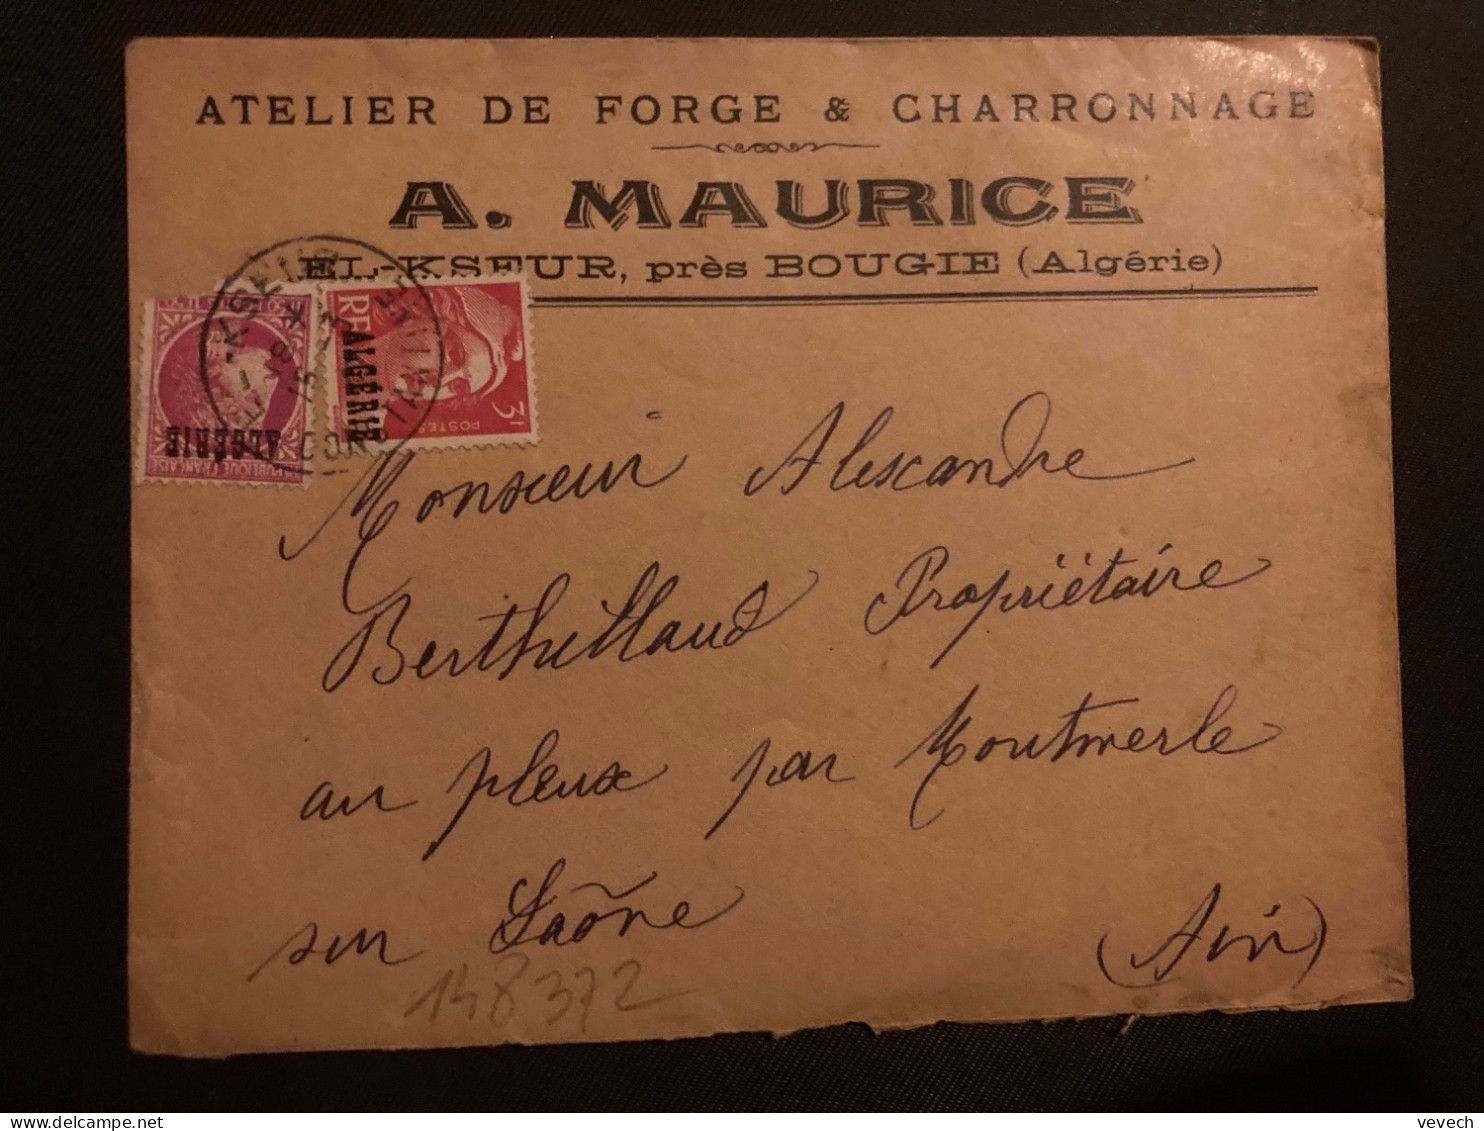 ATELIER DE FORGE & CHARRONNAGE
A. MAURICE
EL-KSEUR, près BOUGIE (Algérie)
RF ALGÉRIE
3F
POSTES
ALGÉRIE
RÉPUBLIQUE FRANÇAISE
-KSEUR
CONSTANTINE
18 *
15
Monsieur Alexandre
Berthillaud Propriétaire
au pleux par Montmerle
sur Saône (Ain)
148372
vevech